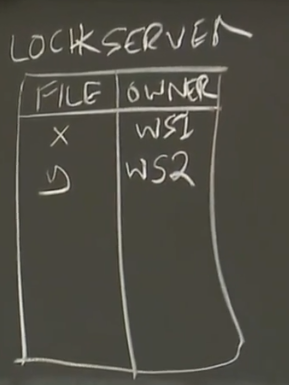 LOCK SERVER
FILE OWNER
X WS1
Y WS2